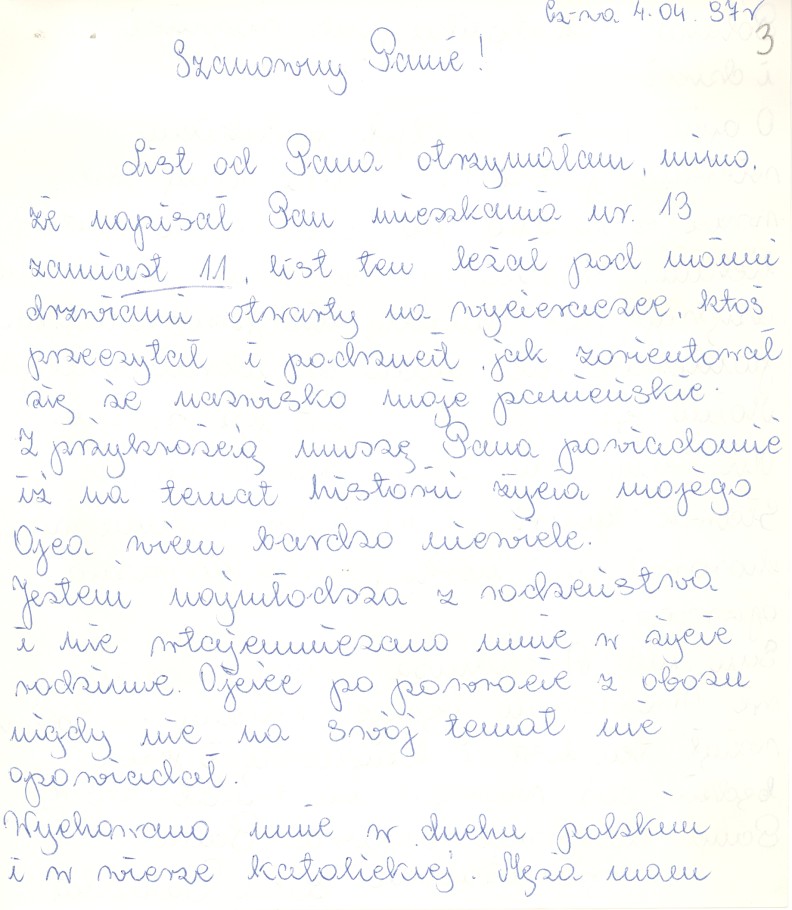 Cz-wa 4.04.97r
3
Szanowny Panie!
List od Pana otrzymałam, mimo,
że napisał Pan mieszkania nr. 13
zamiast 11, list ten leżał pod moimi
drzwiami otwarty na wycieraczce, ktoś
przeczytał i podrzucił, jak zorientował
się że nazwisko moje panieńskie.
Z przykrością muszę Pana powiadomić
iż na temat historii życia mojego
Ojca wiem bardzo niewiele.
Jestem najmłodsza z rodzeństwa
i nie wtajemniczano mnie w życie
rodzinne. Ojciec po powrocie z obozu
nigdy nie na swój temat nie
opowiadał.
Wychowano mnie w duchu polskim
i w wierze katolickiej. Męża mam